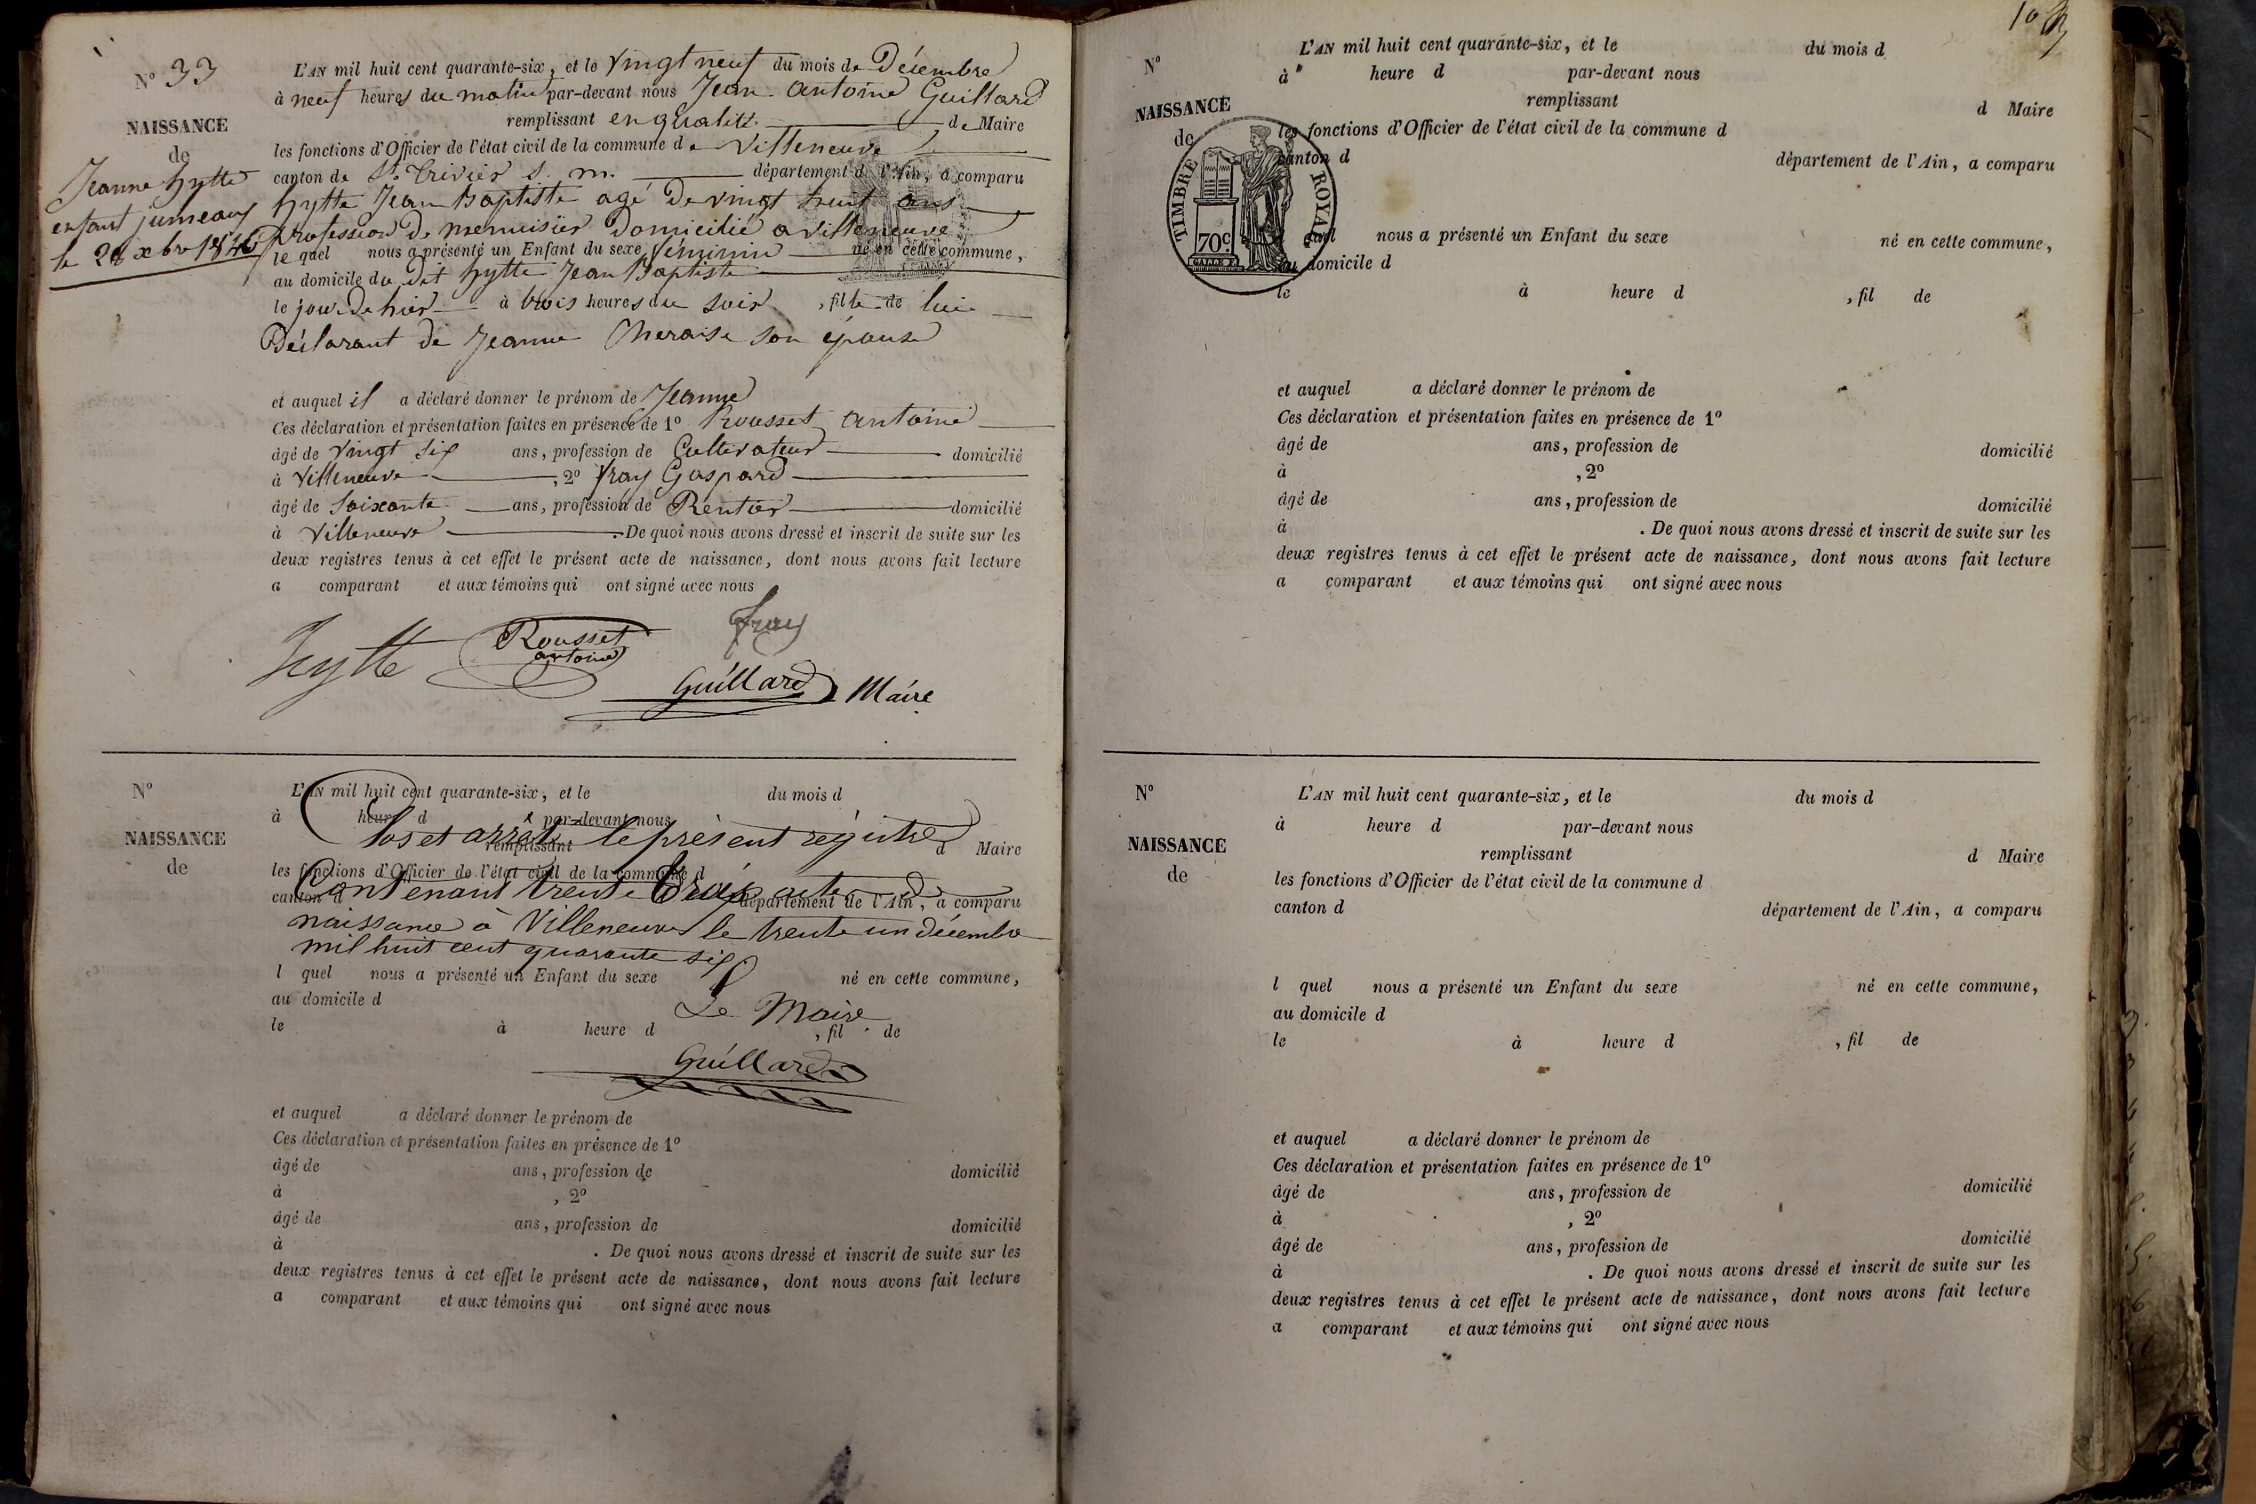 N° 33
NAISSANCE
de
Jeanne hytte
enfant jumeaux
le 28 xbre 1846
L'AN mil huit cent quarante-six, et le vingt neuf du mois de Décembre
à neuf heures du matin par-devant nous Jean Antoine Guillard
remplissant en qualité de Maire
les fonctions d'Officier de l'état civil de la commune de Villeneuve
canton de St. Trivier s. m. département de l'Ain, a comparu
hytte Jean Baptiste agé de vingt huit ans
profession de menuisier domicilié a villeneuve
le quel nous a présenté un Enfant du sexe féminin né en cette commune,
au domicile du dit hytte Jean Baptiste
le jour de hier à trois heures du soir, fille de lui
Déclarant de Jeanne son épouse
et auquel il a déclaré donner le prénom de Jeanne
Ces déclaration et présentation faites en présence de 1° Rousset antoine
âgé de vingt six ans, profession de Cultivateur domicilié
à villeneuve, 2° fray Gaspard
âgé de soixante ans, profession de Rentier domicilié
à villeneuve . De quoi nous avons dressé et inscrit de suite sur les
deux registres tenus à cet effet le présent acte de naissance, dont nous avons fait lecture
a comparant et aux témoins qui ont signé avec nous
hytte Rousset antoine fray
Guillard Maire
N°
NAISSANCE
de
L'AN mil huit cent quarante-six, et le du mois d
à heure d par-devant nous
Clos et arrêté le présent régistre
remplissant d Maire
les fonctions d'Officier de l'état civil de la commune d
Contenant trente trois actes de
canton d département de l'Ain, a comparu
naissance à Villeneuve le trente un décembre
mil huit cent quarante six
l quel nous a présenté un Enfant du sexe né en cette commune,
au domicile d
Le Maire
le à heure d , fil de
Guillard
et auquel a déclaré donner le prénom de
Ces déclaration et présentation faites en présence de 1°
âgé de ans, profession de domicilié
à , 2°
âgé de ans, profession de domicilié
à . De quoi nous avons dressé et inscrit de suite sur les
deux registres tenus à cet effet le présent acte de naissance, dont nous avons fait lecture
a comparant et aux témoins qui ont signé avec nous
N°
NAISSANCE
de
L'AN mil huit cent quarante-six, et le du mois d
à heure d par-devant nous
remplissant d Maire
les fonctions d'Officier de l'état civil de la commune d
canton d département de l'Ain, a comparu
TIMBRE ROYAL
70c.
quel nous a présenté un Enfant du sexe né en cette commune,
au domicile d
le à heure d , fil de
et auquel a déclaré donner le prénom de
Ces déclaration et présentation faites en présence de 1°
âgé de ans, profession de domicilié
à , 2°
âgé de ans, profession de domicilié
à . De quoi nous avons dressé et inscrit de suite sur les
deux registres tenus à cet effet le présent acte de naissance, dont nous avons fait lecture
a comparant et aux témoins qui ont signé avec nous
N°
NAISSANCE
de
L'AN mil huit cent quarante-six, et le du mois d
à heure d par-devant nous
remplissant d Maire
les fonctions d'Officier de l'état civil de la commune d
canton d département de l'Ain, a comparu
l quel nous a présenté un Enfant du sexe né en cette commune,
au domicile d
le à heure d , fil de
et auquel a déclaré donner le prénom de
Ces déclaration et présentation faites en présence de 1°
âgé de ans, profession de domicilié
à , 2°
âgé de ans, profession de domicilié
à . De quoi nous avons dressé et inscrit de suite sur les
deux registres tenus à cet effet le présent acte de naissance, dont nous avons fait lecture
a comparant et aux témoins qui ont signé avec nous